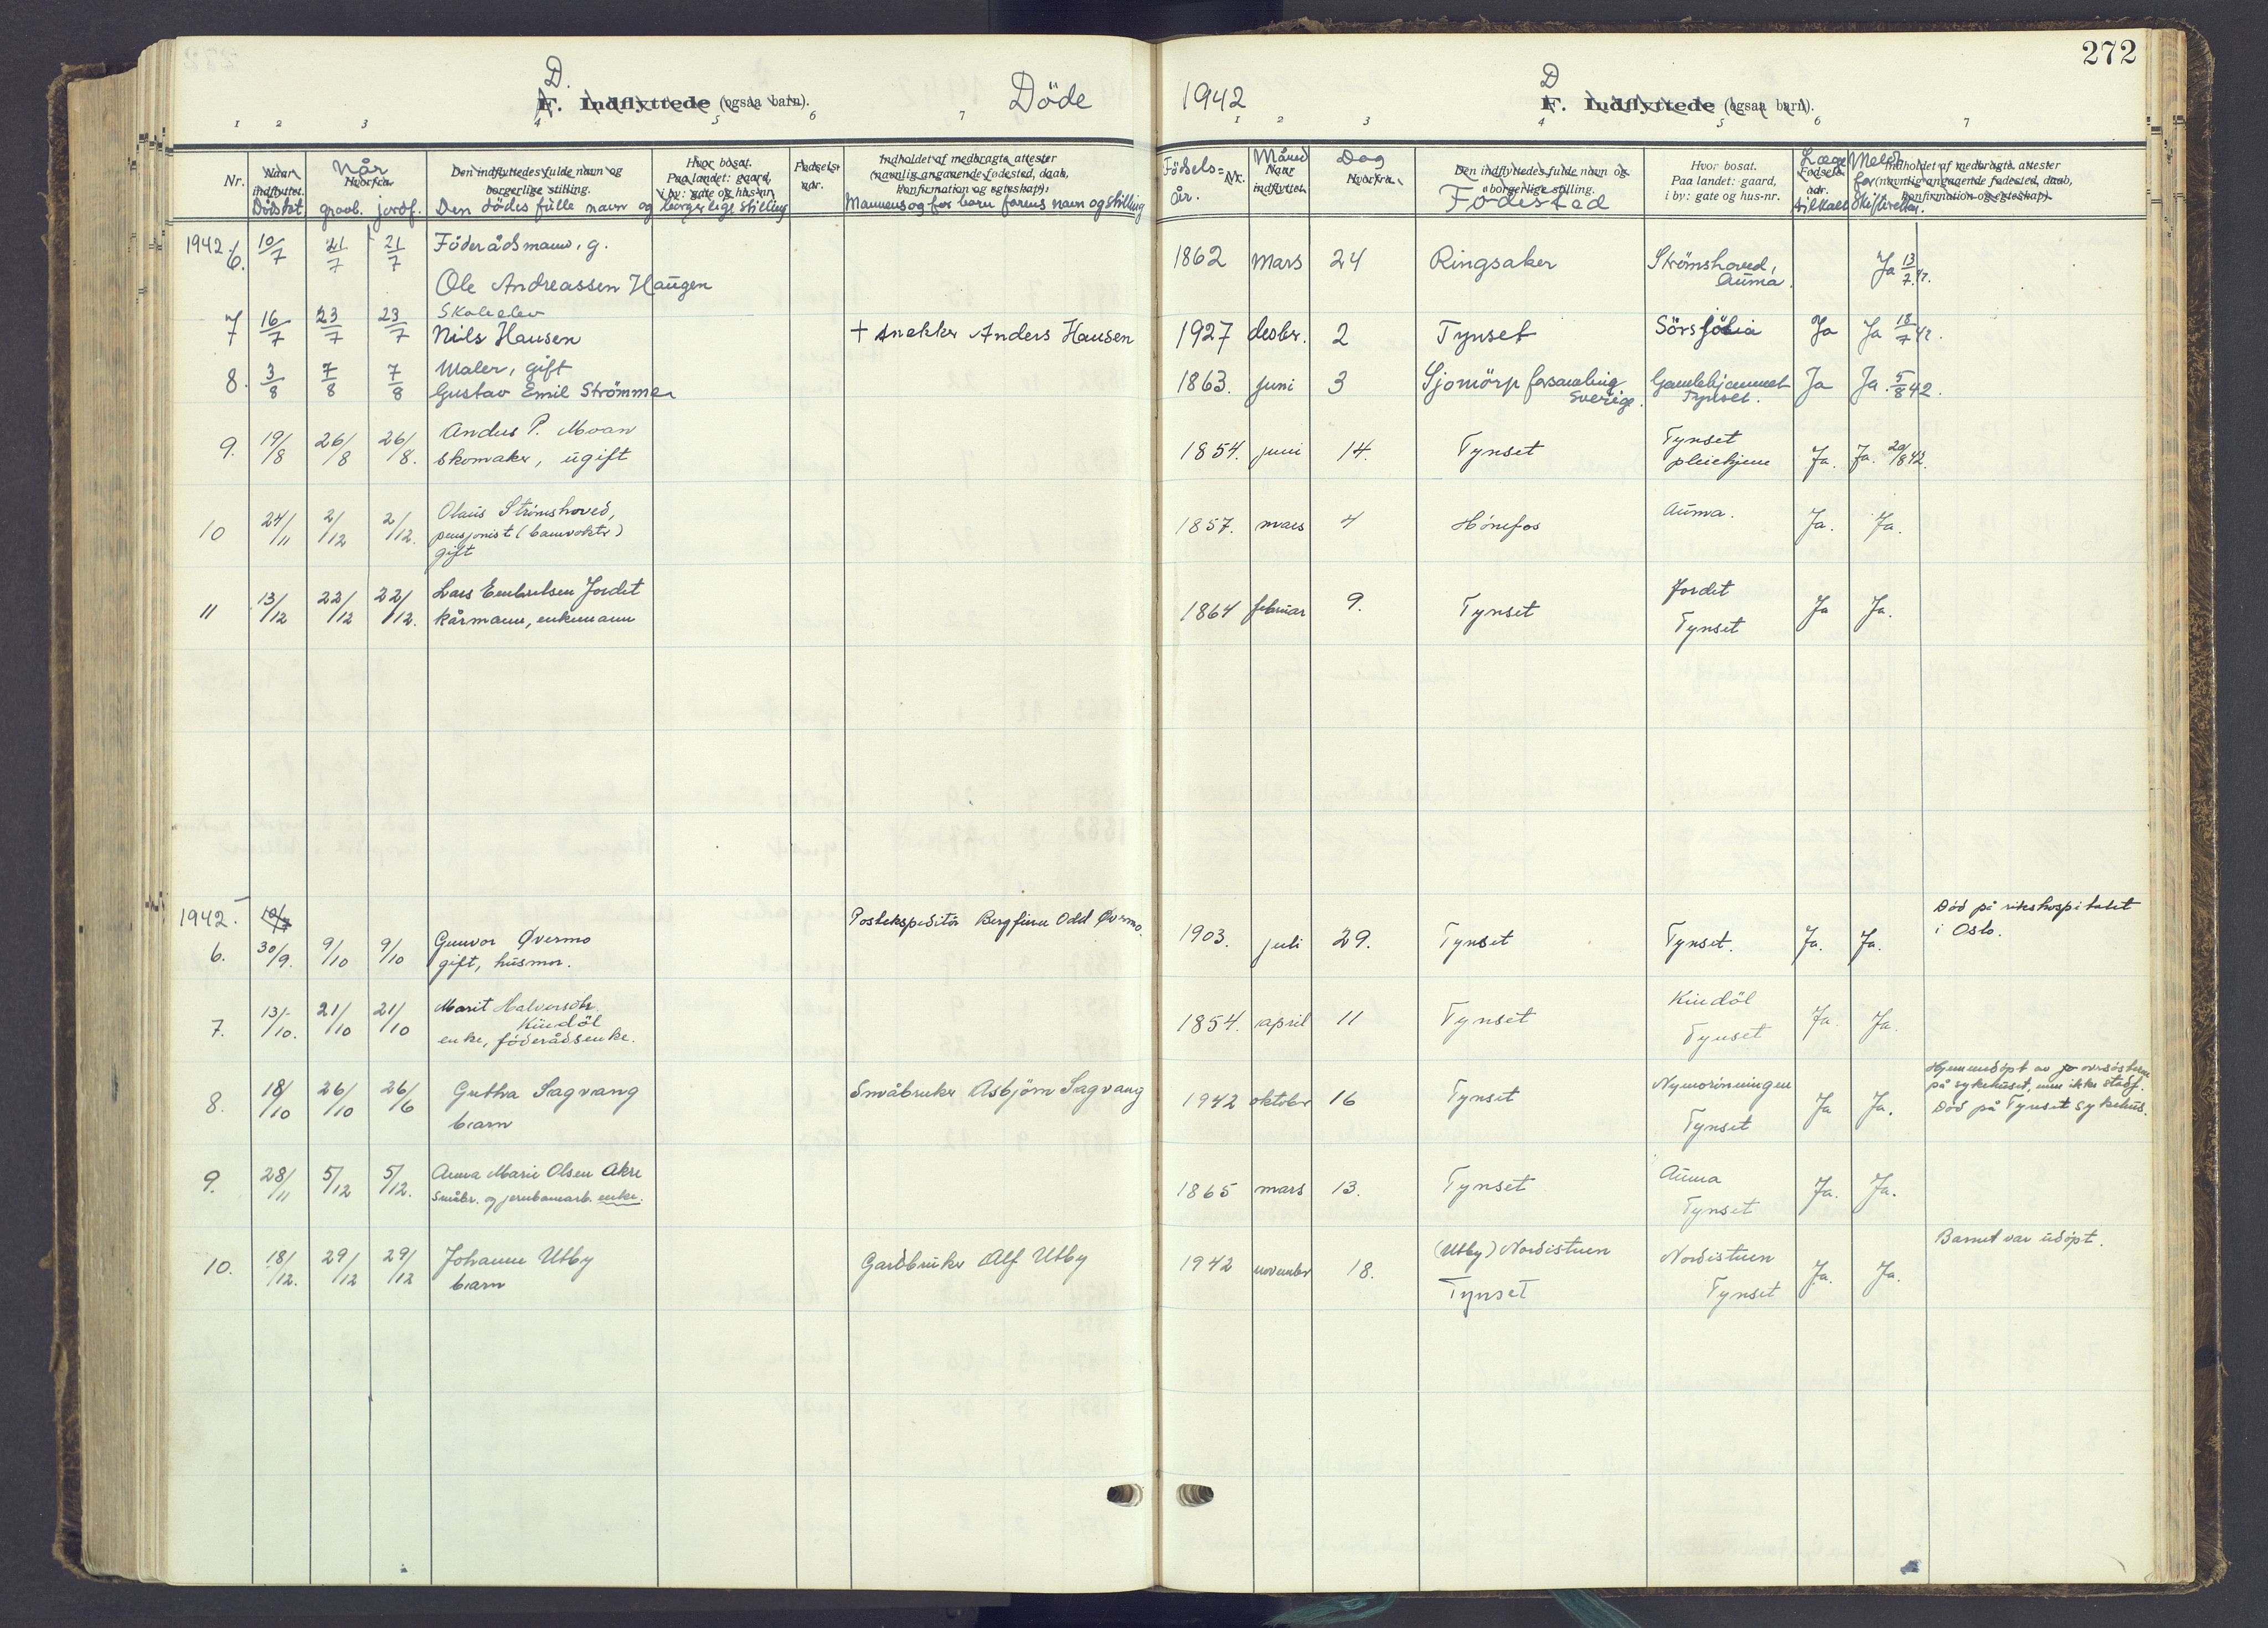 272
D. Döde 1942 D
F. Indflyttede (ogsaa barn). F. Indflyttede (ogsaa barn).
1 2 3 4 5 6 7 1 2 3 4 5 6 7
Nr. Naar indflyttet. Dødsdat. Når Hvorfra. gravl. jordf. Den indflyttedes fulde navn og borgerlige stilling. Den dödes fulle navn og borgerlige stilling Hvor bosat. Paa landet: gaard, i by: gate og hus-nr. Fødsels-aar. Indholdet af medbragte attester (navnlig angaaende fødested, daab, konfirmation og egteskap). Mannens og for barn farens navn og stilling
Födsels= år. Nr. Måned Naar indflyttet. Dag Hvorfra. Den indflyttedes fulde navn og borgerlige stilling. Födested Hvor bosat. Paa landet: gaard, i by: gate og hus-nr. Læge Fødsels-aar. tilkalt Meldt for Skifteretten. Indholdet af medbragte attester (navnlig angaaende fødested, daab, konfirmation og egteskap).
1942. 6. 10/7 21/7 21/7 Föderådsmann, g. 1862 mars 24 Ringsaker Strömshoved, Ja 13/7 42.
Ole Andreassen Haugen Auma.
7 16/7 23/7 23/7 Skoleelev
Nils Hansen + Anders Hansen 1927 desbr. 2 Tynset Ja Ja 18/7 42.
8. 3/8 7/8 7/8 Maler, gift
Gustav Emil Strömmer 1863. juni 3 Sverige. Gamlehjemmet Tynset. Ja Ja. 5/8 42.
9. 19/8 26/8 26/8. P. Moan 1854. juni 14. Tynset Tynset
skomaker, ugift pleiehjem Ja. Ja. 20/8 42.
10 24/11 2/12 2/12. Olaus Strömshoved, 1857. mars 4 Hönefos Auma. Ja. Ja.
pensjonist (banevokter)
gift
11 13/12 22/12 22/12. Lars Embretsen Jordet 1864 februar 9. Tynset Jordet Ja Ja.
kårmann, enkemann Tynset
1942. 10/7 Postekspeditör Bergfinn Odd Øvermo. Död på rikshospitalet
6. 30/9. 9/10 9/10 Gunvor Øvermo 1903. juli 29. Tynset Tynset. Ja. Ja. i Oslo.
gift, husmor.
7. 13/10. 21/10 21/10 Marit Halvorsdtr. 1854. april 11 Tynset Kindöl Ja. Ja.
Kindöl Tynset
enke, föderådsenke.
8. 18/10 26/10 26/6 Grethra Sagvang Småbruker Asbjörn Sagvang 1942 oktober 16 Tynset Nymorinningen Ja Ja. Hjemmedöpt av oversösteren
barn Tynset på sykehuset, men ikke stadf.
Död på Tynset sykehus.
9. 28/11 5/12 5/12. Anna Marie Olsen Akre 1865 mars 13. Tynset Auma Ja. Ja.
Småbr. og jernbanearb. enke. Tynset
10. 18/12. 29/12 29/12 Johanne Utby Gardbruker Alf Utby 1942 november 18. (Utby) Nordistuen Nordistuen Ja. Ja. Barnet var udöpt.
barn Tynset Tynset